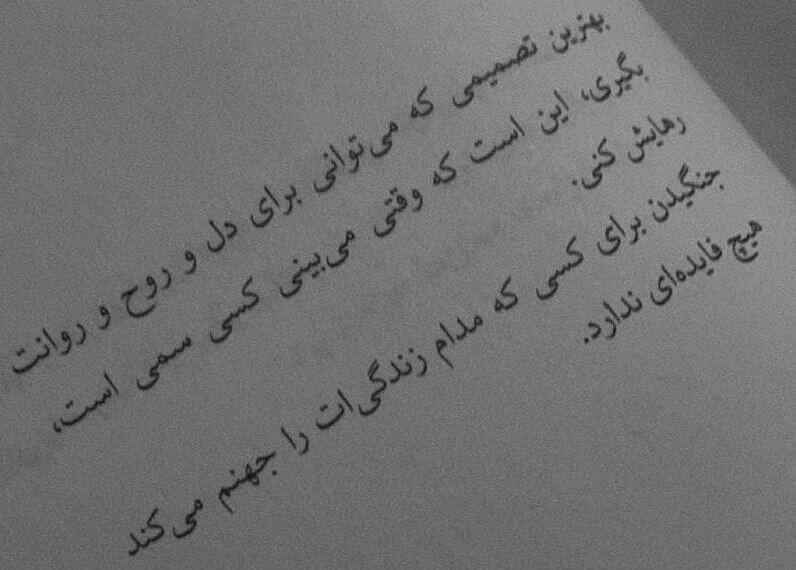 بهترین تصمیمی که می‌توانی برای دل و روح و روانت
بگیری، این است که وقتی می‌بینی کسی سمی است،
رهایش کنی.
جنگیدن برای کسی که مدام زندگی‌ات را جهنم می‌کند
هیچ فایده‌ای ندارد.